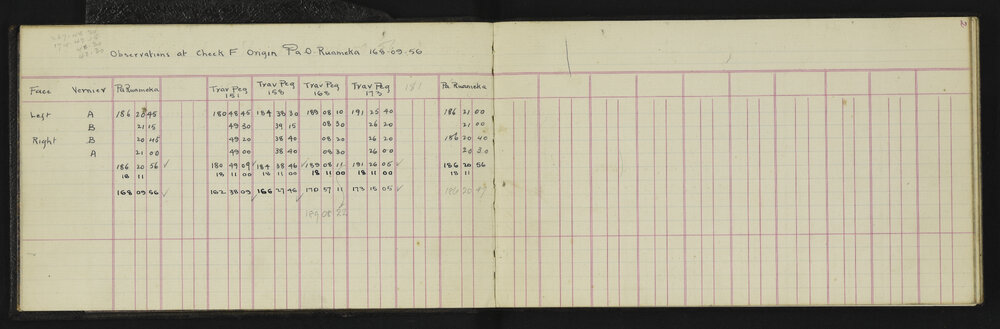 2
Observations at Check F Origin Pa O Ruameka 168.09.56
Face Vernier Pa Ruameka Trav Peg 151 Trav Peg 158 Trav Peg 168 Trav Peg 173 181 Pa Ruameka
Left A 186 20 45 180 48 45 184 38 30 189 08 10 191 25 40 186 21 00
B 21 15 49 30 39 15 08 30 26 20 21 00
Right B 20 45 49 20 38 40 08 20 26 20 186 20 40
A 21 00 49 00 38 40 08 30 26 00 20 30
186 20 56 ✓ 180 49 09 ✓ 184 38 46 ✓ 189 08 11 191 26 05 ✓ 186 20 56
18 11 18 11 00 18 11 00 18 11 00 18 11 00 18 11
168 09 56 ✓ 162 38 09 ✓ 166 27 46 ✓ 170 57 11 173 15 05 ✓ 186 20 49
189 08 22